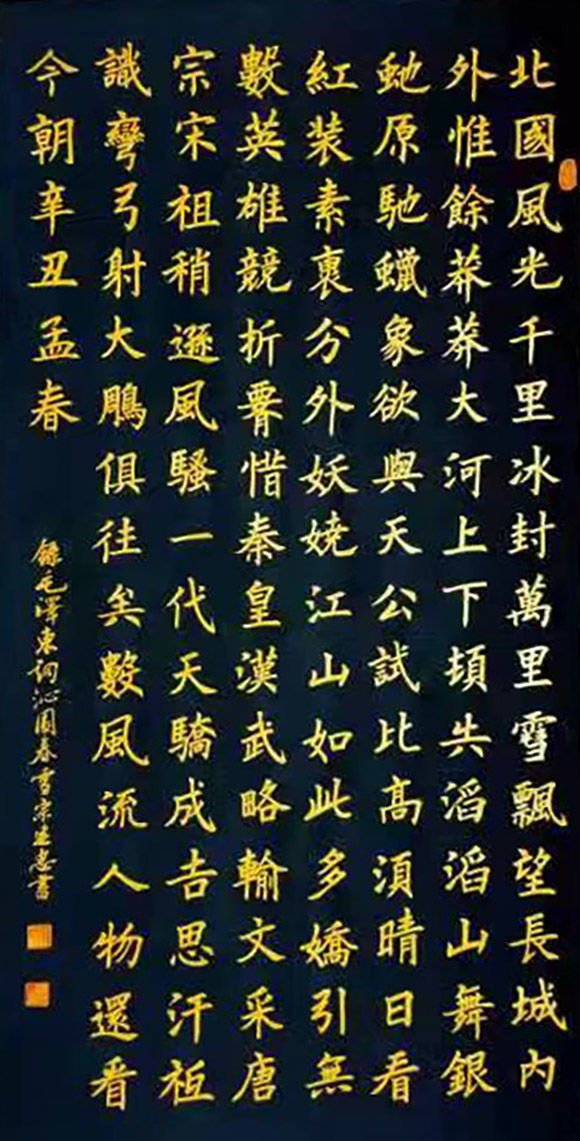 北國風光千里冰封萬里雪飄望長城内
外惟餘莽莽大河上下頓失滔滔山舞銀
虵原馳蠟象欲與天公試比高須晴日看
紅装素裹分外妖娆江山如此多嬌引無
數英雄競折腰惜秦皇漢武略輸文采唐
宗宋祖稍遜風騷一代天驕成吉思汗祗
識彎弓射大鵰俱往矣數風流人物還看
今朝辛丑孟春
錄毛澤東詞沁園春雪宗書